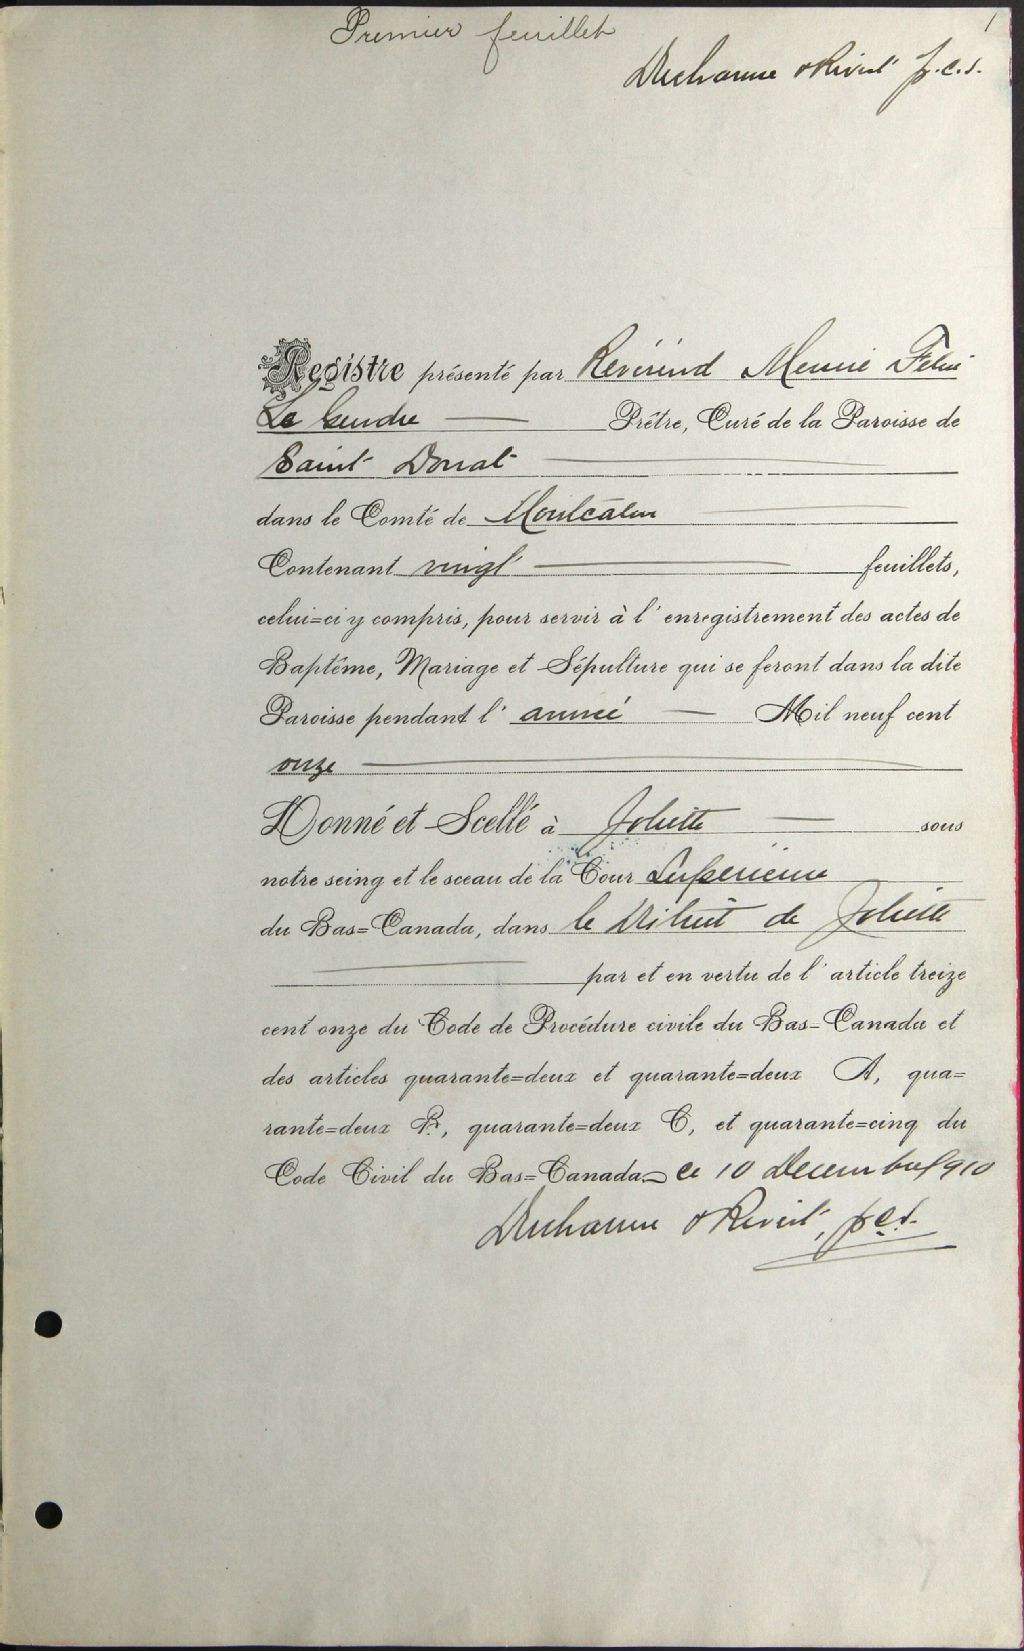 Premier feuillet
1
Ducharme & Rivest p.c.s.
Registre présenté par Révérend Messire Félix
Le Gendre Prêtre, Curé de la Paroisse de
Saint Donat
dans le Comté de Montcalm
Contenant vingt feuillets,
celui=ci y compris, pour servir à l'enregistrement des actes de
Baptême, Mariage et Sépulture qui se feront dans la dite
Paroisse pendant l' année Mil neuf cent
onze
Donné et Scellé à Joliette sous
notre seing et le sceau de la Cour Supérieure
du Bas=Canada, dans le District de Joliette
par et en vertu de l'article treize
cent onze du Code de Procédure civile du Bas=Canada et
des articles quarante=deux et quarante=deux A, qua=
rante=deux B, quarante=deux C, et quarante=cinq du
Code Civil du Bas=Canada ce 10 Decembre 1910
Ducharme & Rivest, p.c.s.